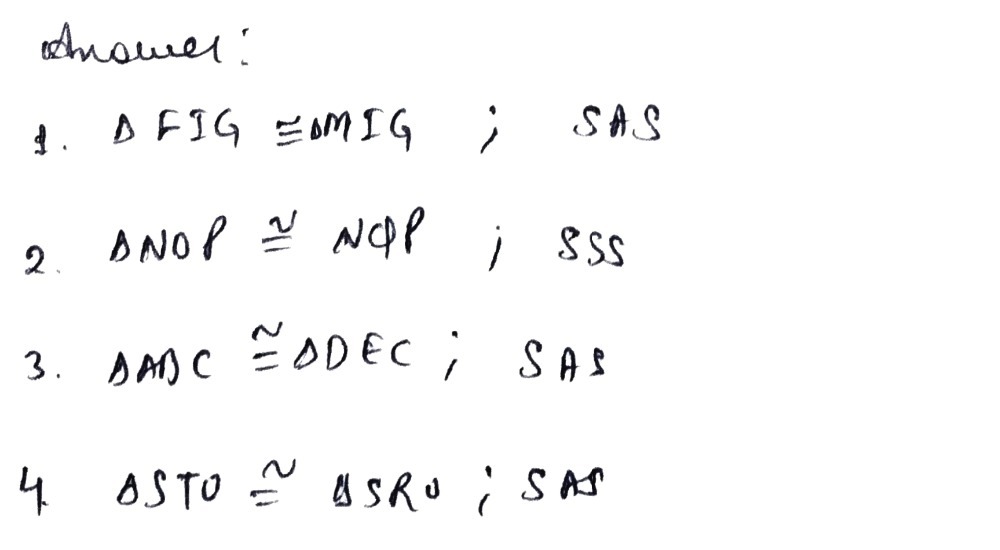 Answer:
1. Δ FIG ≅ ΔMIG ; SAS
2. ΔNOP ≅ NQP ; SSS
3. ΔABC ≅ ΔDEC ; SAS
4 ΔSTU ≅ ΔSRU ; SAS